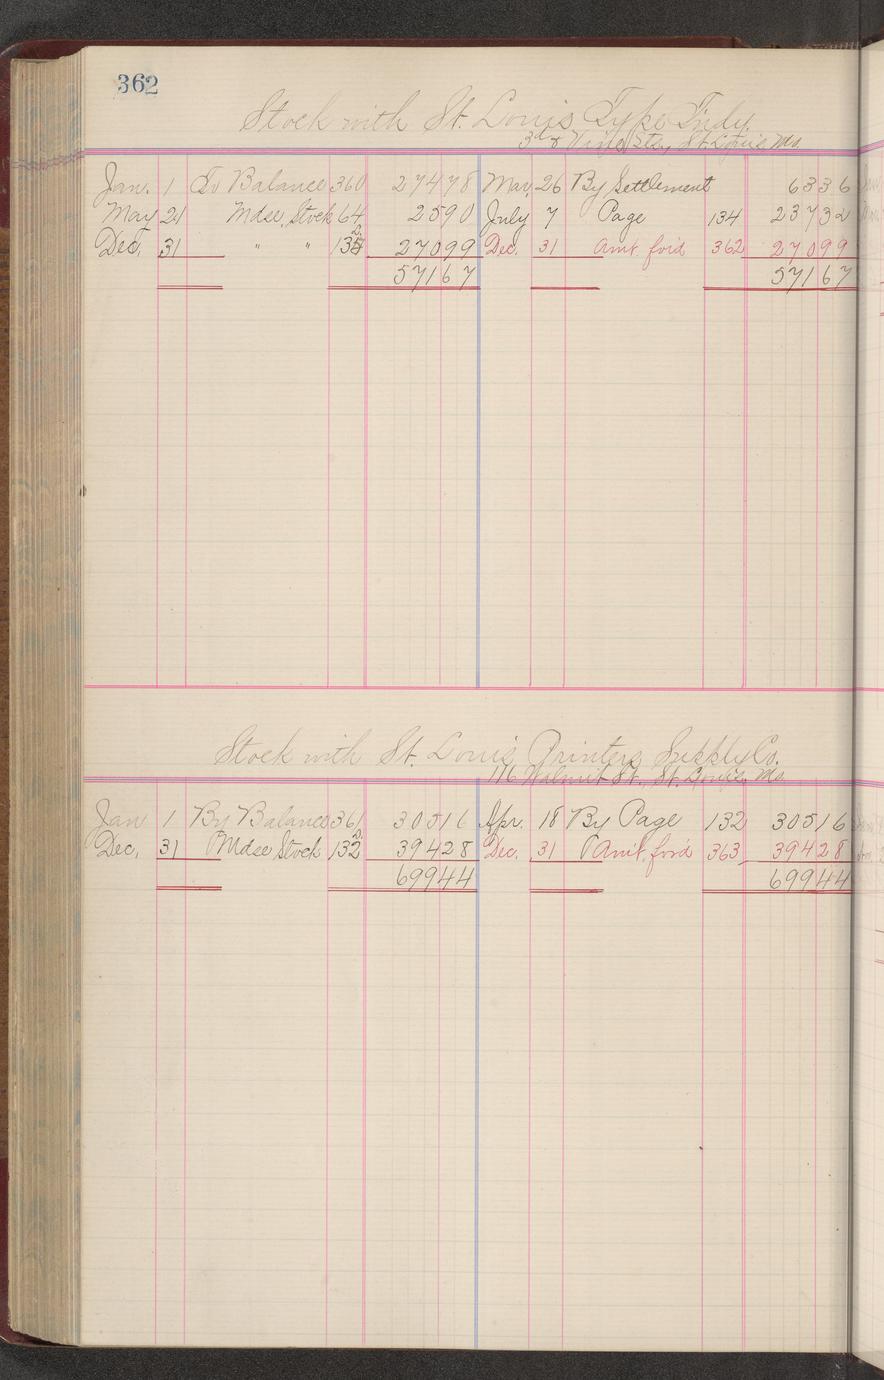 362
Stock with St. Louis Type Fndy.
3d & Vine Sts., St. Louis Mo.
Jan. 1 To Balance 360 27478 May 26 By Settlement 6336
May 21 Mdse. Stock 64 2590 July 7 Page 134 23732
Dec. 31 " " 135 27099 Dec. 31 Amt. for'd 362 27099
57167 57167
Stock with St. Louis Printers Supply Co.
116 Walnut St., St. Louis, Mo.
Jan 1 By Balance 361 30516 Apr. 18 By Page 132 30516
Dec. 31 Mdse Stock 132 39428 Dec. 31 Amt. for'd 363 39428
69944 69944